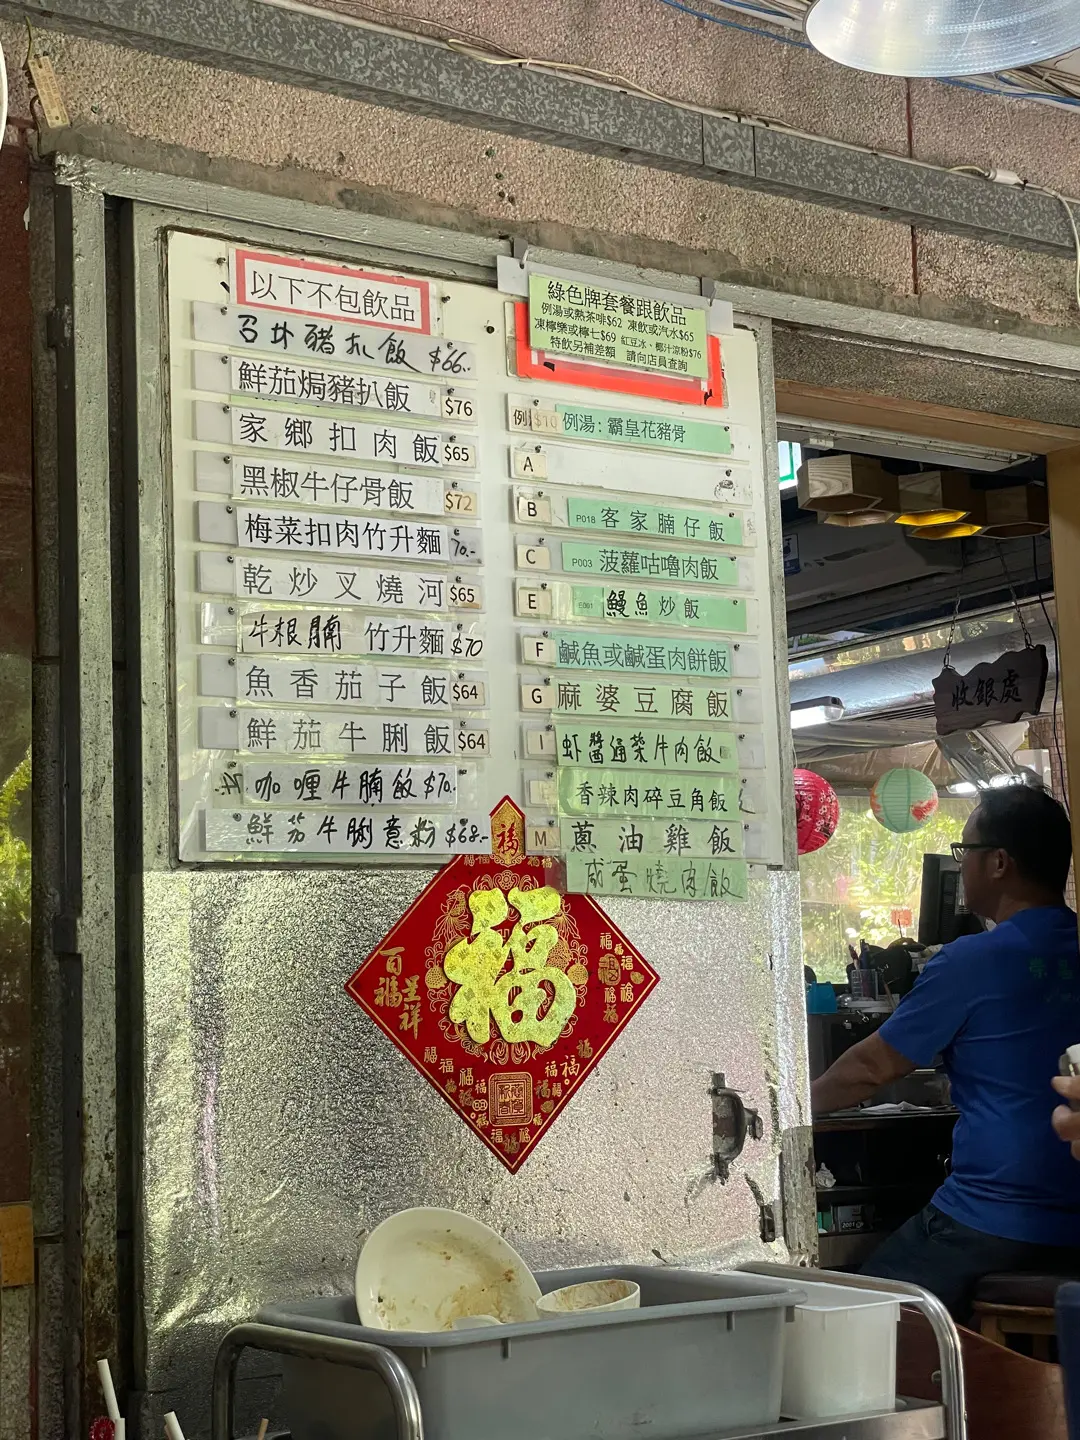 以下不包飲品
豬扒飯 $66.-
鮮茄焗豬扒飯 $76
家鄉扣肉飯 $65
黑椒牛仔骨飯 $72
梅菜扣肉竹升麵 70.-
乾炒叉燒河 $65
牛根腩 竹升麵 $70
魚香茄子飯 $64
鮮茄牛脷飯 $64
咖喱牛腩飯 $70.-
鮮茄牛脷意粉 $68.-
綠色牌套餐跟飲品
例湯或熱茶啡$62 凍飲或汽水$65
凍檸樂或檸七$69 紅豆冰、椰汁涼粉$76
特飲另補差額 請向店員查詢
例 $10 例湯：霸皇花豬骨
A
B P018 客家腩仔飯
C P003 菠蘿咕嚕肉飯
E E001 鰻魚炒飯
F 鹹魚或鹹蛋肉餅飯
G 麻婆豆腐飯
I 虾醬通菜牛肉飯
香辣肉碎豆角飯
M 蔥油雞飯
咸蛋燒肉飯
福
福
百福
呈祥
收銀處